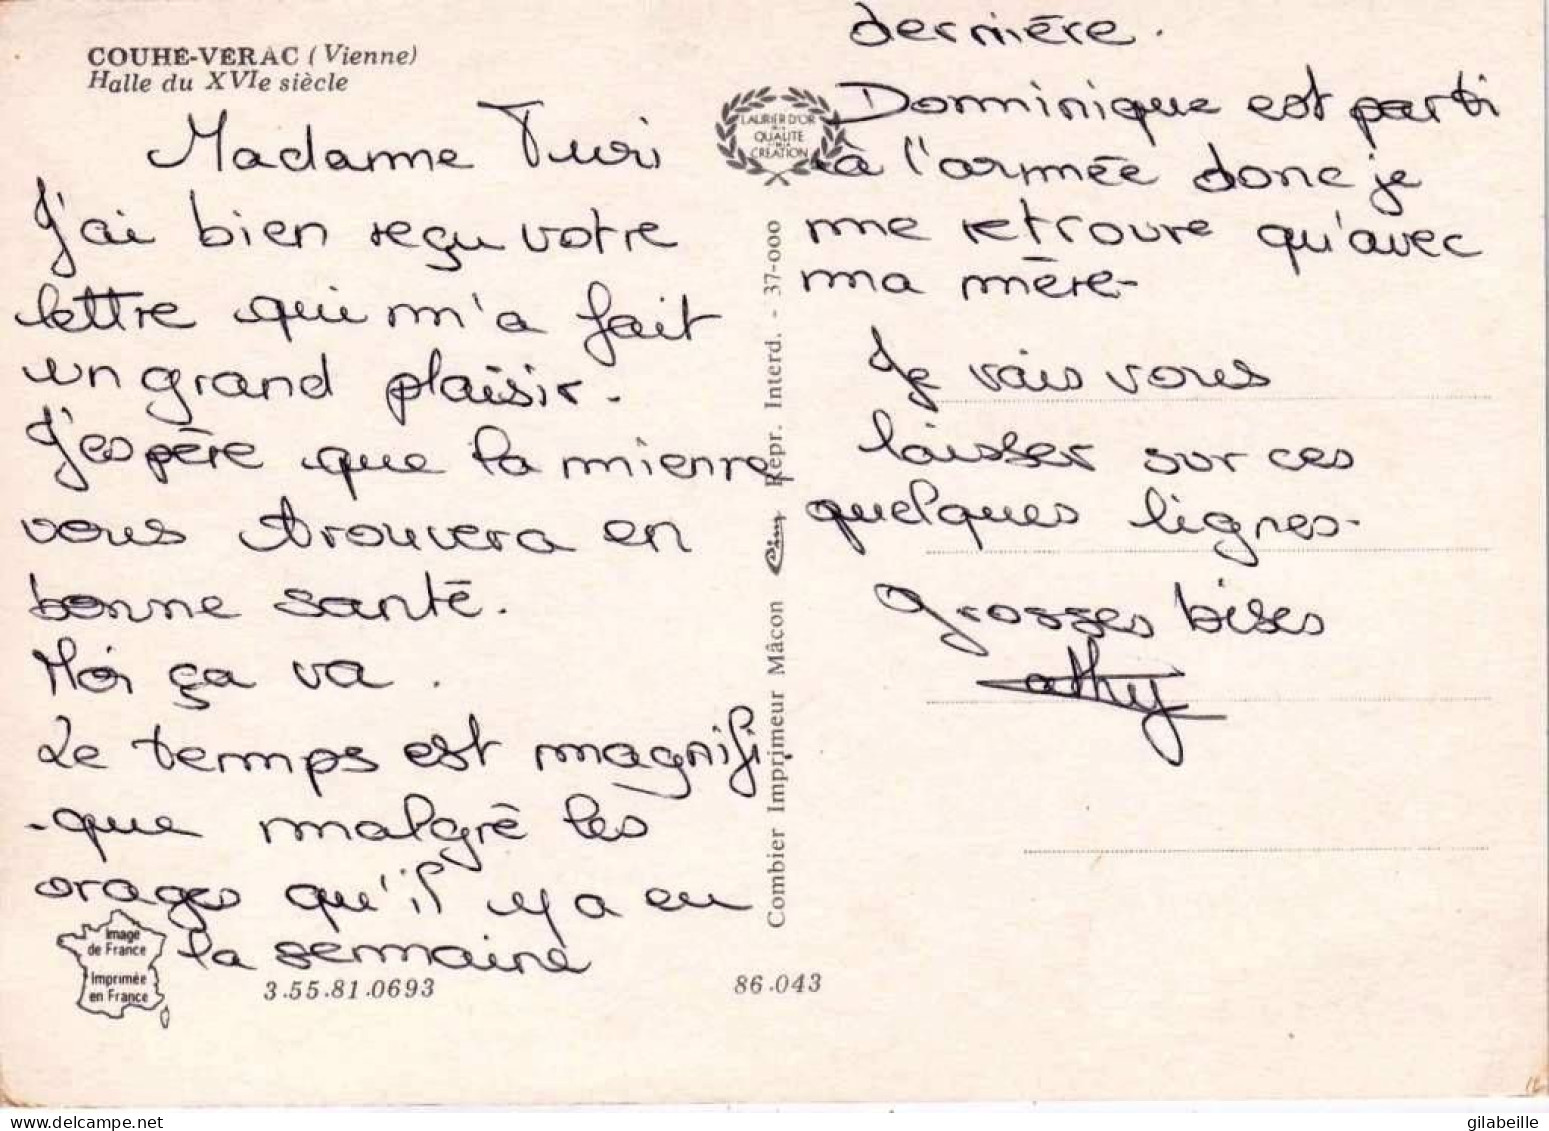 COUHÉ-VÉRAC (Vienne)
Halle du XVIe siècle
Madame Turi
J'ai bien reçu votre
lettre qui m'a fait
un grand plaisir.
J'espère que la mienne
vous trouvera en
bonne santé.
Moi ça va.
Le temps est magnifi
-que malgré les
orages qu'il y a eu
la semaine
Image
de France
Imprimée
en France
3.55.81.0693
86.043
LAURIER D'OR
DE LA
QUALITÉ
CRÉATION
Combier Imprimeur Mâcon Cim Repr. Interd. - 37-000
dernière.
Dominique est parti
à l'armée donc je
me retrouve qu'avec
ma mère-
Je vais vous
laisser sur ces
quelques lignes-
Grosses bises
Cathy
gilabeille